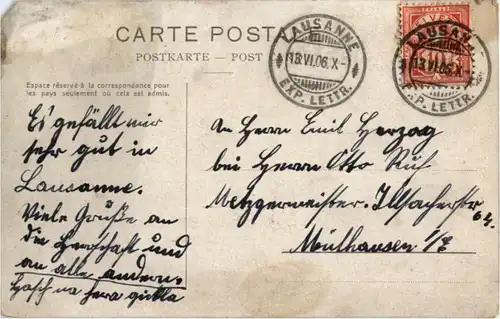 CARTE POSTA
POSTKARTE - POST
LAUSANNE
13.VI.06.X-
EXP. LETTR.
LAUSAN
13.VI.06.X-
EXP. LETTR.
HELVE
Espace réservé à la correspondance pour
les pays seulement où cela est admis.
Es gefällt mir
sehr gut in
Lausanne.
Viele Grüße an
die Herrschaft und
an alle andern.
An Herrn Emil Herzog
bei Herrn Otto Ruf
Metzgermeister. Illsacherstr
64.
Mülhausen i/E